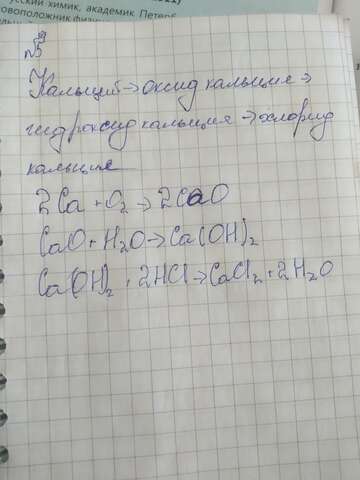 русский химик, академик. Петерб
овоположник физи
№5
Кальций → оксид кальция →
гидроксид кальция → хлорид
кальция
2Ca + O₂ → 2CaO
CaO + H₂O → Ca(OH)₂
Ca(OH)₂ + 2HCl → CaCl₂ + 2H₂O